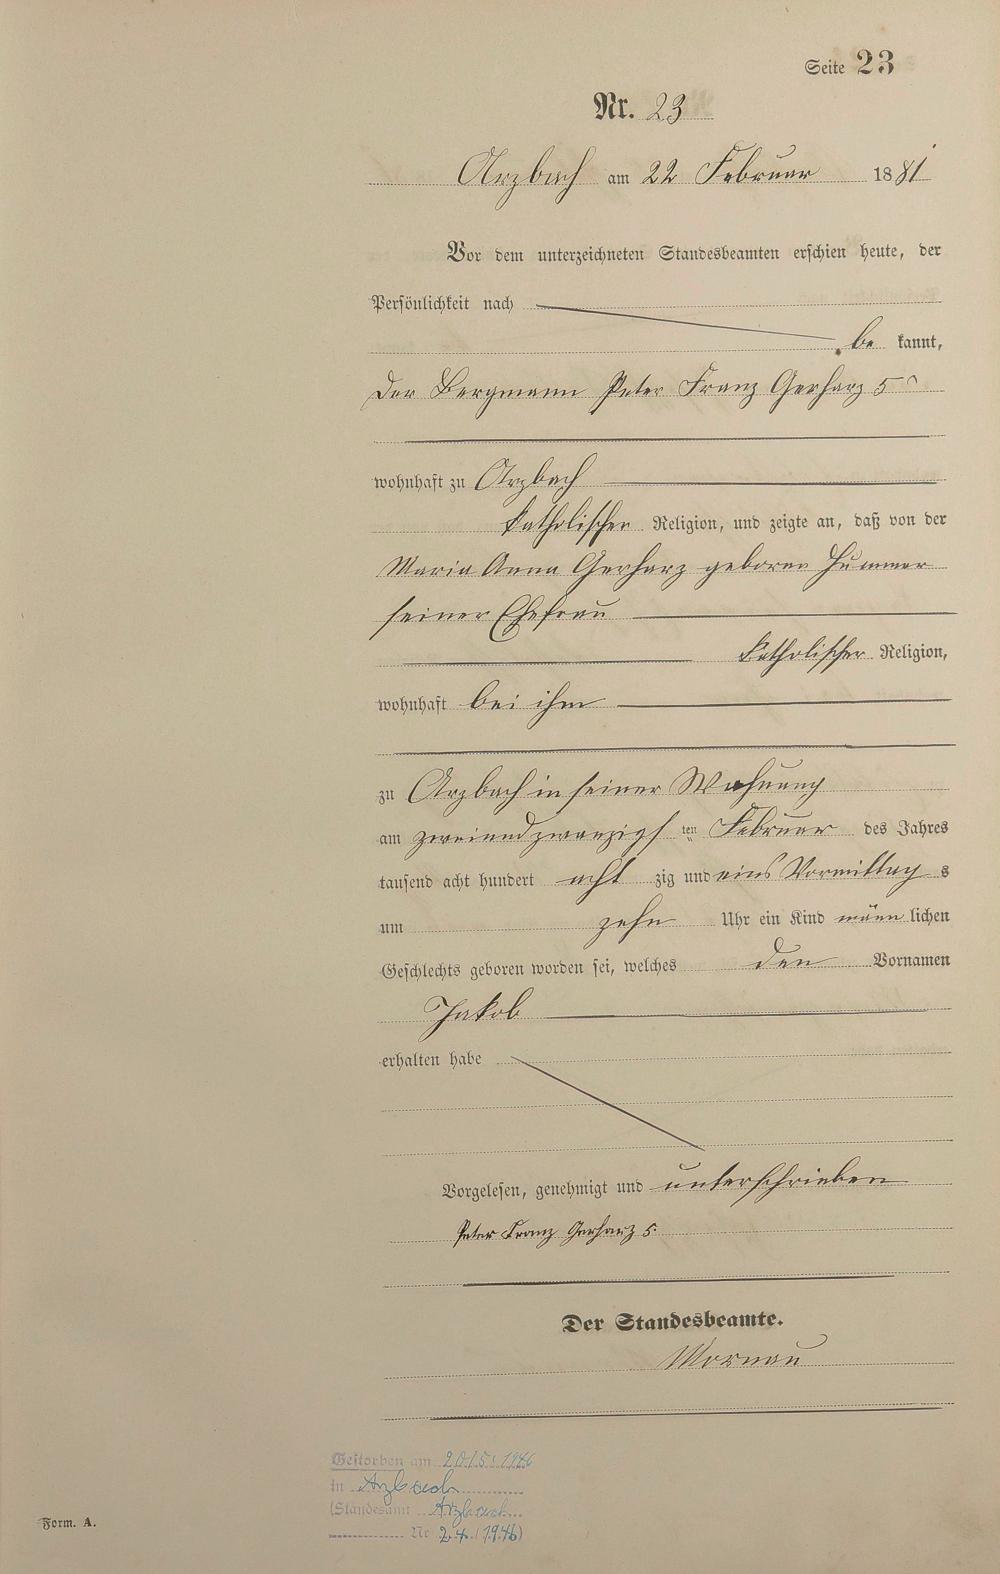 Seite 23
Nr. 23
Arzbach am 22 Februar 1881
Vor dem unterzeichneten Standesbeamten erschien heute, der
Persönlichkeit nach
be kannt,
der Bergmann Peter Franz Gerharz 5
wohnhaft zu Arzbach
katholischer Religion, und zeigte an, daß von der
Maria Anna Gerharz geboren Hummer
seiner Ehefrau
katholischer Religion,
wohnhaft bei ihm
zu Arzbach in seiner Wohnung
am zweiundzwanzigs ten Februar des Jahres
tausend acht hundert acht zig und eins Vormittag s
um zehn Uhr ein Kind männ lichen
Geschlechts geboren worden sei, welches den Vornamen
Jakob
erhalten habe
Vorgelesen, genehmigt und unterschrieben
Peter Franz Gerharz 5.
Der Standesbeamte.
Mornau
Gestorben am 20.5.1946
in Arzbach
(Standesamt Arzbach
Nr 24 (1946)
Form. A.